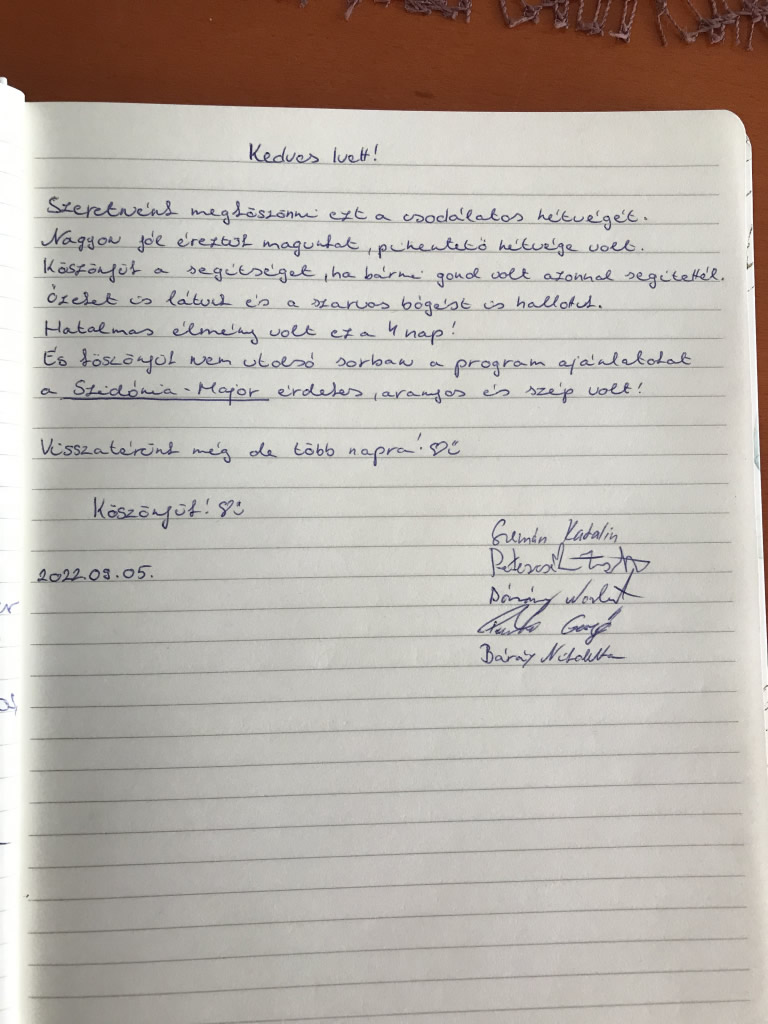 Kedves Ivett!
Szeretnénk megköszönni ezt a csodálatos hétvégét.
Nagyon jól éreztük magunkat, pihentető hétvége volt.
Köszönjük a segítséget, ha bármi gond volt azonnal segítettél.
Őzeket is láttunk és a szarvas bőgést is hallottuk.
Hatalmas élmény volt ez a 4 nap!
És köszönjük nem utolsó sorban a program ajánlatokat
a Szidónia-Major érdekes, aranyos és szép volt!
Visszatérünk még de több napra!
Köszönjük!
Katalin
2022.09.05.
Norbert
Bárány Nikoletta